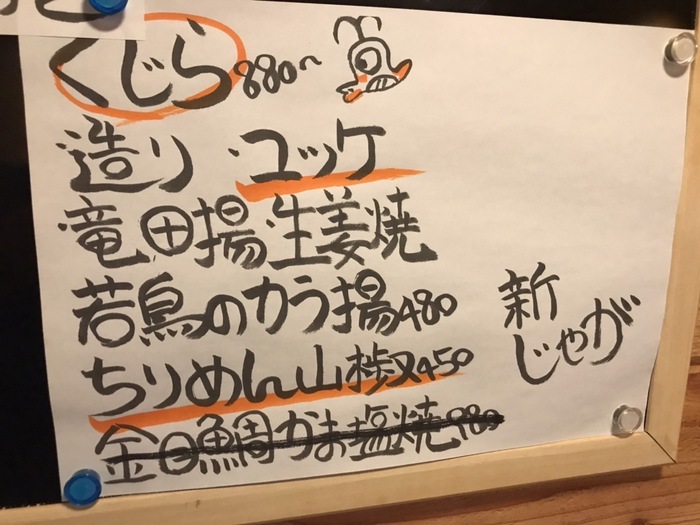 くじら 880~
造り・ユッケ
竜田揚・生姜焼
若鳥のから揚480
ちりめん山椒450
金目鯛かま塩焼980
新
じゃが